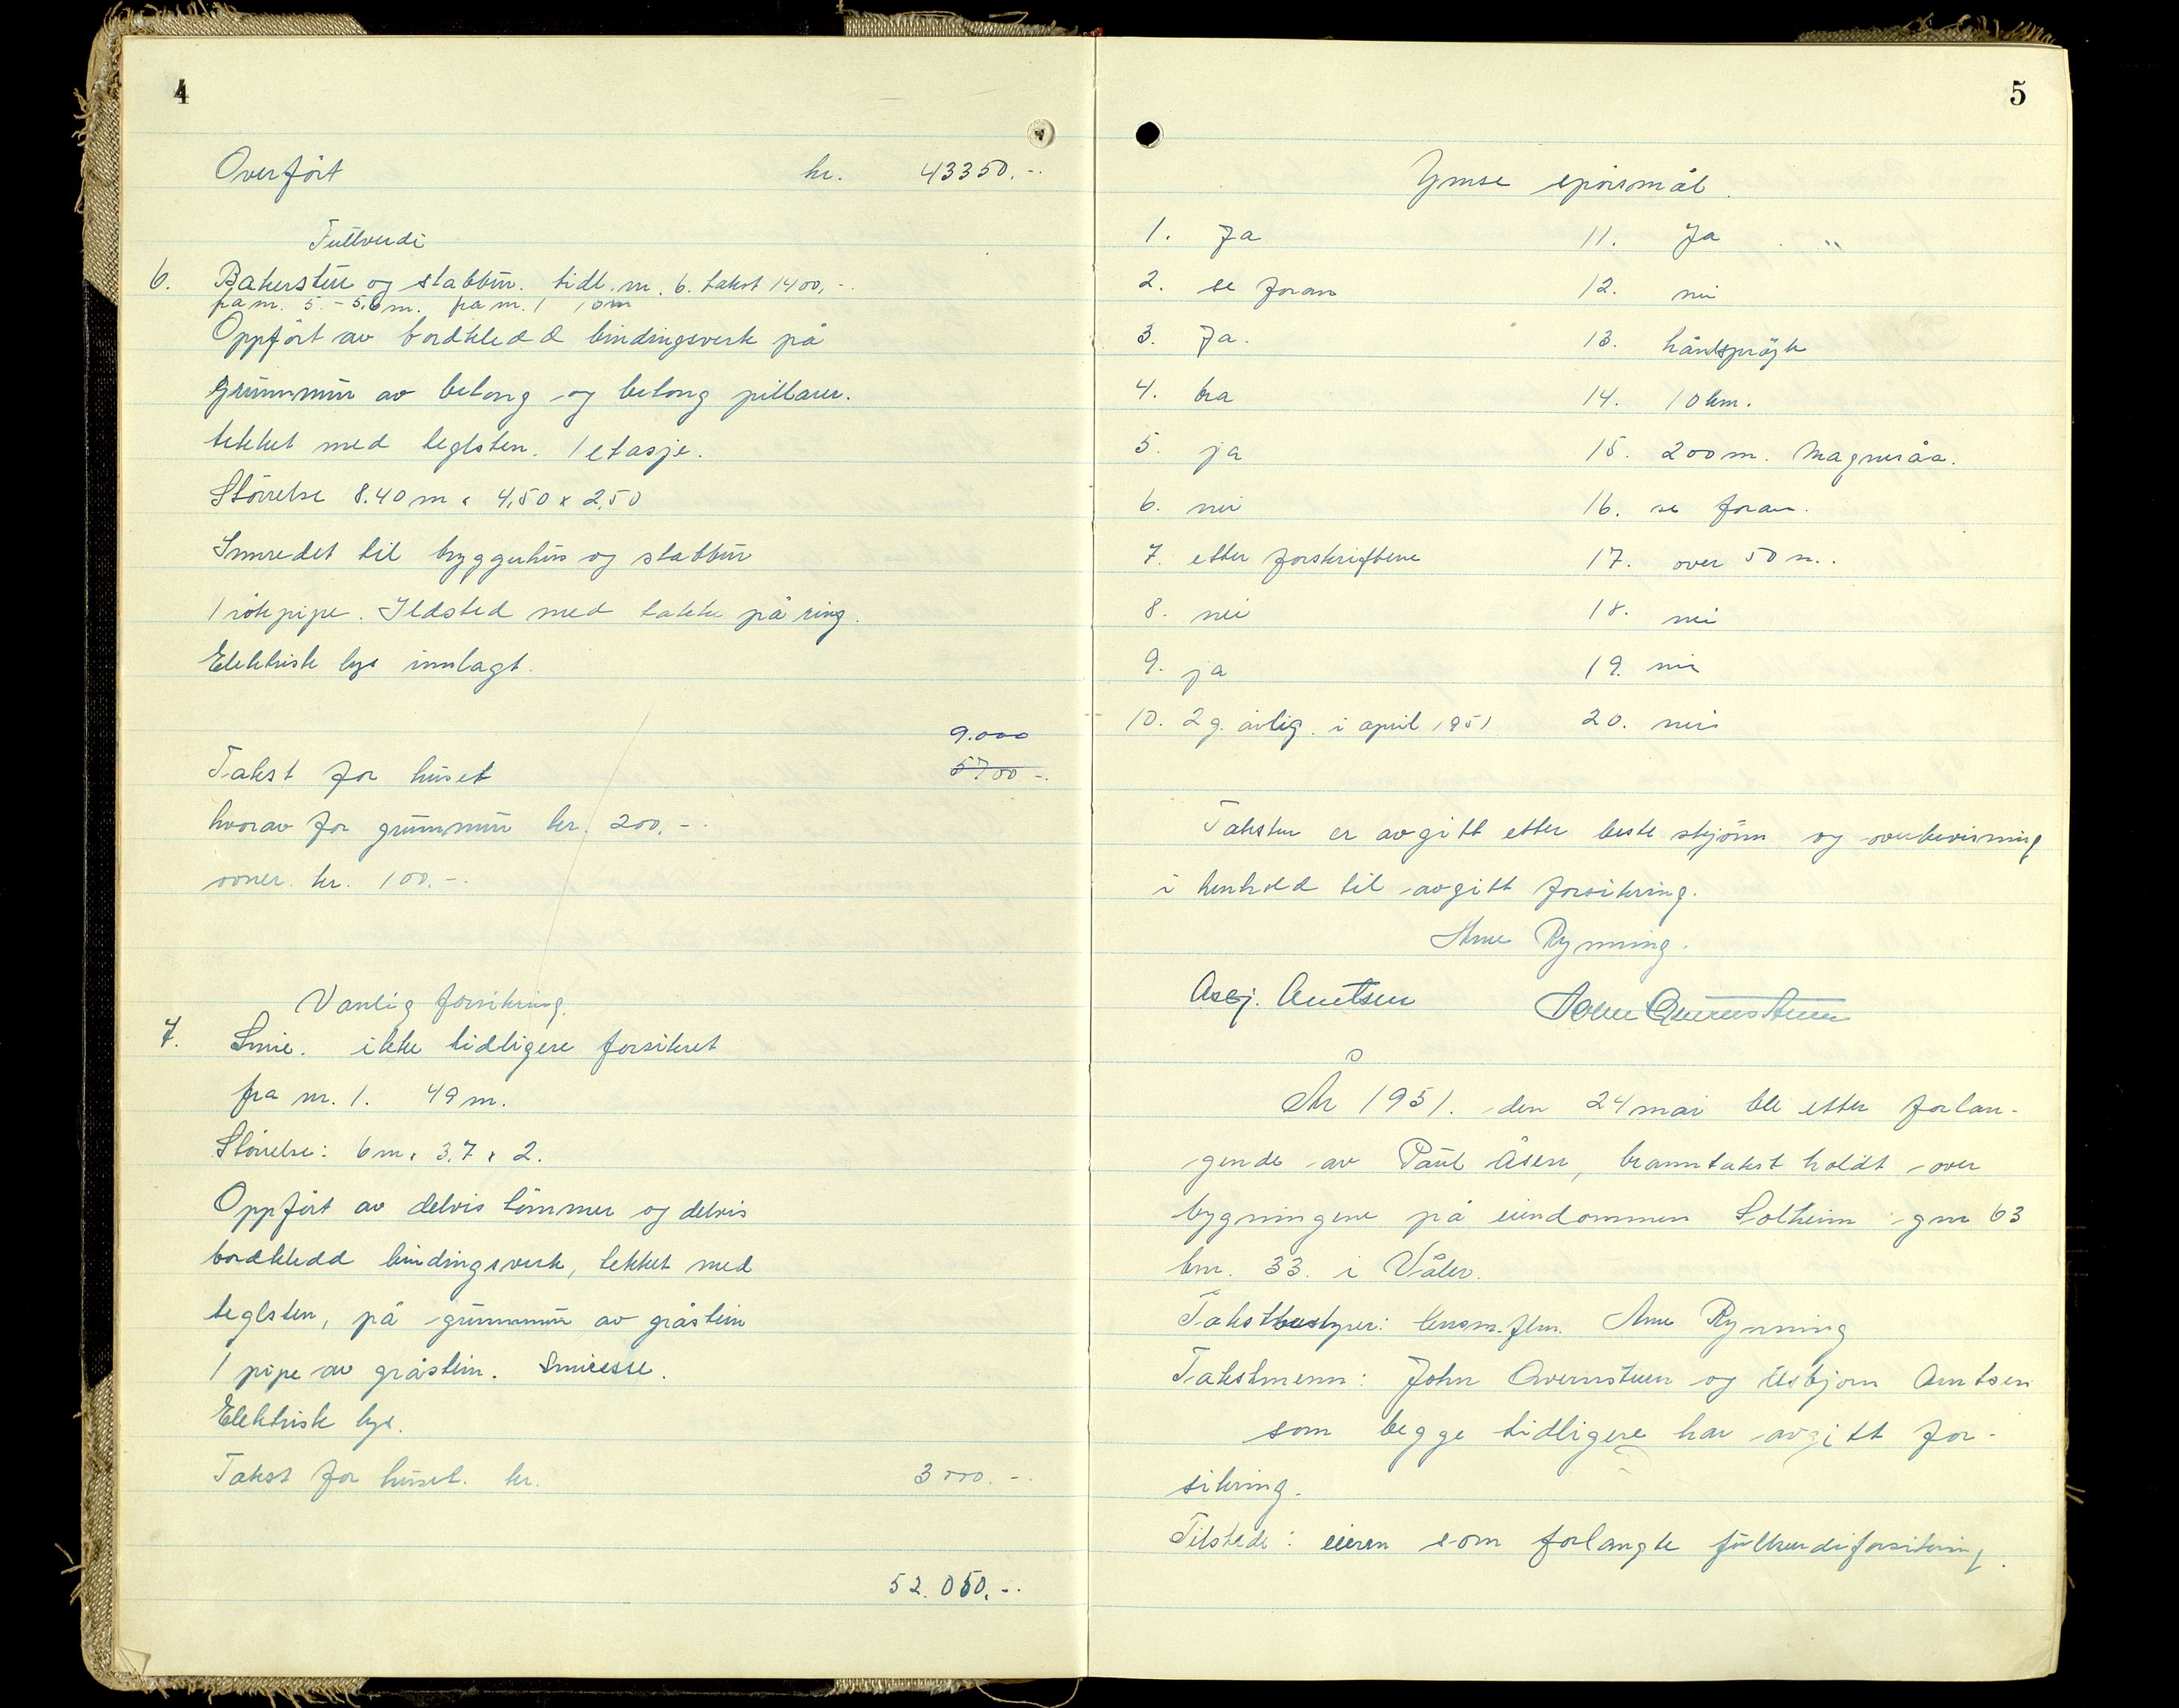 4
Overført kr. 43350.-
Fullverdi
6. Bakerstue og stabbur. tidl. nr. 6. takst 1400,-
fra nr. 5. - 5.6 m. fra nr. 1 10m
Oppført av bordkledd bindingsverk på
grunnmur av betong og betong pillarer.
tekket med teglsten. 1 etasje.
Størrelse 8.40 m x 4,50 x 2,50
Innredet til bryggerhus og stabbur
1 røkpipe. Ildsted med takke på ring.
Elektrisk lys innlagt.
9.000
Takst for huset 5700 -.
hvorav for grunnmur kr. 200.-
ovner. kr. 100.-
Vanlig forsikring.
7. Smie. ikke tidligere forsikret
fra nr. 1. 49 m.
Størrelse: 6 m x 3.7 x 2.
Oppført av delvis tømmer og delvis
bordkledd bindingsverk, tekket med
teglsten, på grunnmur av gråstein
1 pipe av gråstein. Smiesse.
Elektrisk lys.
Takst for huset. kr. 3000.-
52.050.-
5
Ymse spørsmål.
1. Ja 11. Ja "
2. se foran 12. nei
3. Ja. 13. håndsprøyte
4. bra 14. 10 km.
5. ja 15. 200 m. Magneråa.
6. nei 16. se foran.
7. etter forskriftene 17. over 50 m.
8. nei 18. nei
9. ja 19. nei
10. 2 g. årlig. i april 1951 20. nei
Taksten er avgitt etter beste skjønn og overbevisning
i henhold til avgitt forsikring.
Arne Rynning.
Asbj. Arntsen John Overnsteen
År 1951. den 24 mai ble etter forlan-
gende av Paul Åsen, branntakst holdt over
bygningene på eiendommen Solheim gnr 63
bnr. 33. i Våler.
Takstbestyrer: lensm.flm. Arne Rynning
Takstmenn: John Overnsteen og Asbjørn Arntsen
som begge tidligere har avgitt for-
sikring.
Tilstede: eieren som forlangte fullverdiforsikring.